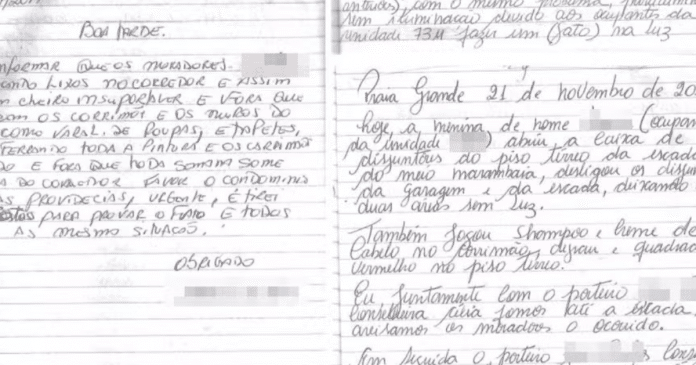 BOA TARDE.
INFORMAR QUE OS MORADORES
LIXOS NO CORREDOR E ASSIM
CHEIRO INSUPORTAVEL E FORA QUE
OS CORRIMÃO E OS MUROS DO
COMO VARAL DE ROUPAS, E TAPETES,
TODA A PINTURA E OS CORRIMÃO
E FORA QUE TODA SOMAM SOME
DO CORREDOR FAVOR O CONDOMINIO
AS PROVIDECIAS, URGENTE, E TIREI
PARA PROVAR O FATO E TODOS
AS MESMO SITUAÇÃO.
OBRIGADO
com o mesmo problema,
sem iluminação devido aos ocupantes da
unidade 734 fazer um (gato) na luz
Praia Grande 21 de novembro de 20
hoje, a menina de nome (ocupan
da unidade abriu a caixa de
disjuntores do piso térreo da escada
do meio marambaia, desligou os disjun
da garagem e da escada, deixando
duas áreas sem luz.
Também jogou shampoo e creme de
cabelo no corrimão, degrau e quadrado
vermelho no piso térreo.
Eu juntamente com o porteiro
Conselheira fomos até a
avisamos os moradores o ocorrido.
Em seguida o porteiro